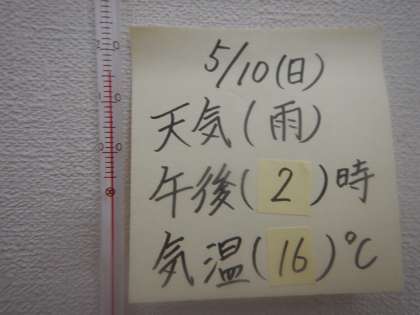 5/10(日)
天気(雨)
午後(2)時
気温(16)℃